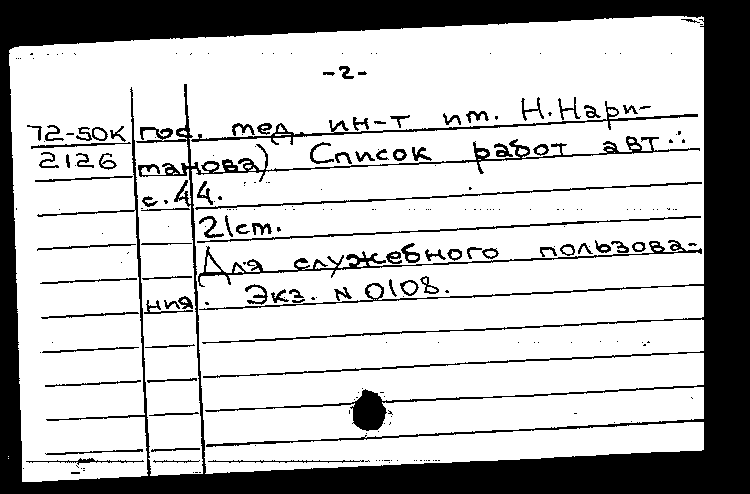 -2-
72-50К гос. мед. ин-т им. Н. Нари-
2126 манова) Список работ авт.:
с. 44.
21см.
Для служебного пользова-
ния. Экз. N 0108.